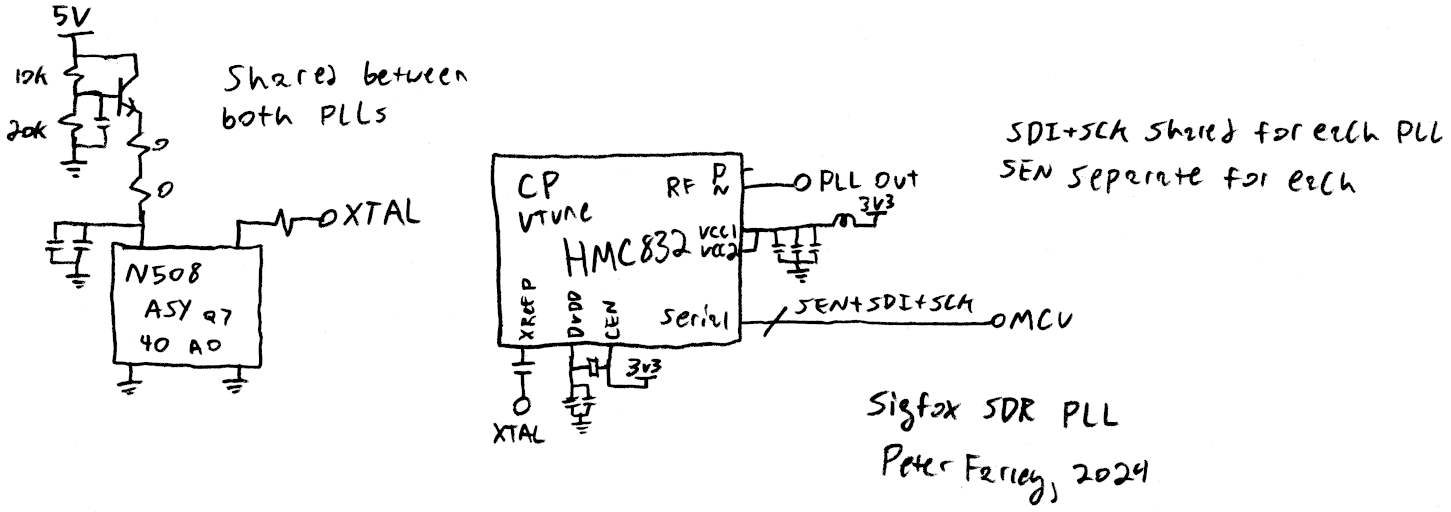 5V
10k
20k
0
0
Shared between
both PLLs
XTAL
N508
ASY 97
40 A0
CP
VTUNE
HMC832
RF P
N
PLL Out
VCC1
VCC2
3V3
XRefP
DVDD
CEN
Serial
SEN+SDI+SCK
MCU
3V3
XTAL
SDI+SCK Shared for each PLL
SEN Separate for each
Sigfox SDR PLL
Peter Farley, 2024